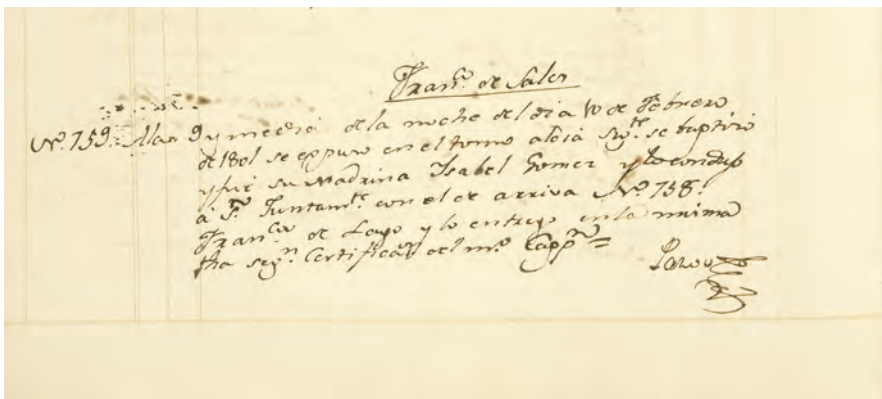 Fran.co de Sales
N.o 759. A las 9 y media de la noche del dia 10 de Febrero
de 1801 se expuso en el torno al dia sig.te se baptizó
y fué su Madrina Isabel Gomez y lo condujo
á S.n Juntam.te con el de arriva N.o 758.
Fran.co de Lago y lo entregó en la misma
fha seg.n Certificaón del m.o Capp.n =